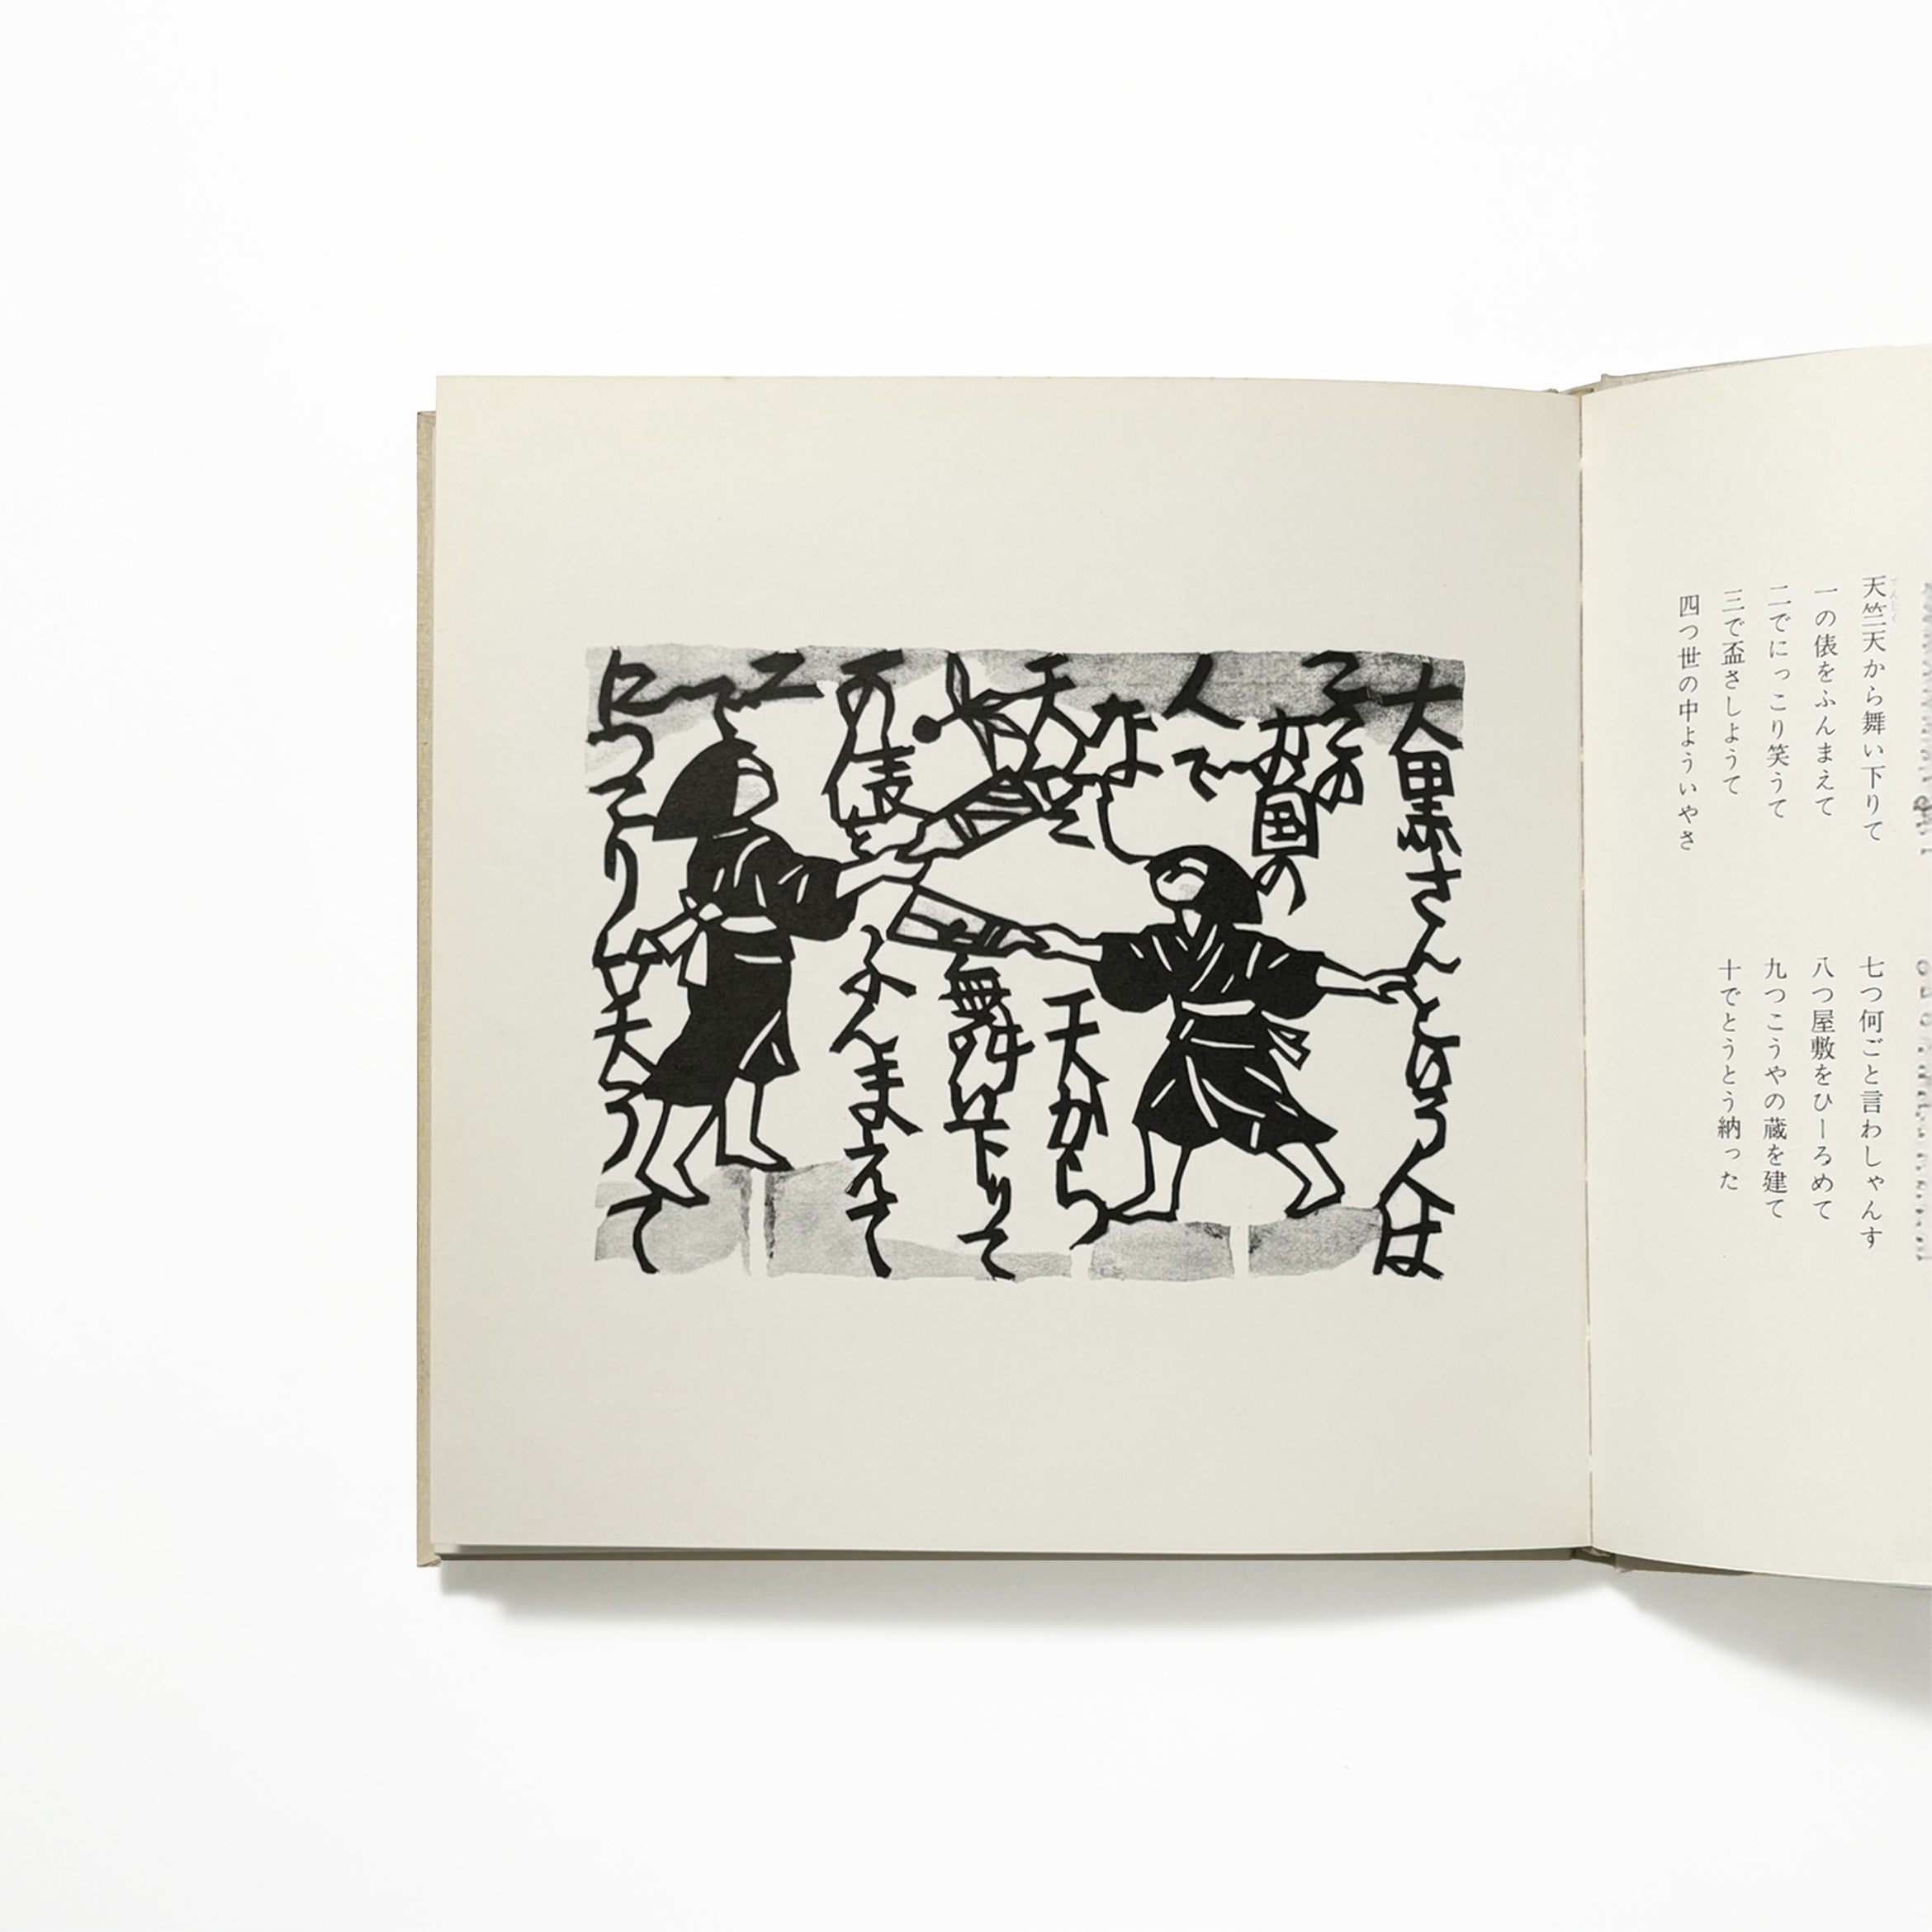 天竺天から舞い下りて
一の俵をふんまえて
二でにっこり笑うて
三で盃さしようて
四つ世の中よういやさ
七つ何ごと言わしゃんす
八つ屋敷をひーろめて
九つこうやの蔵を建て
十でとうとう納った
大黒さんとゆう人は
この
お国の
人で
な
天竺
天から
舞い下りて
の俵を
ふんまえて
二で
にっこり
笑うて